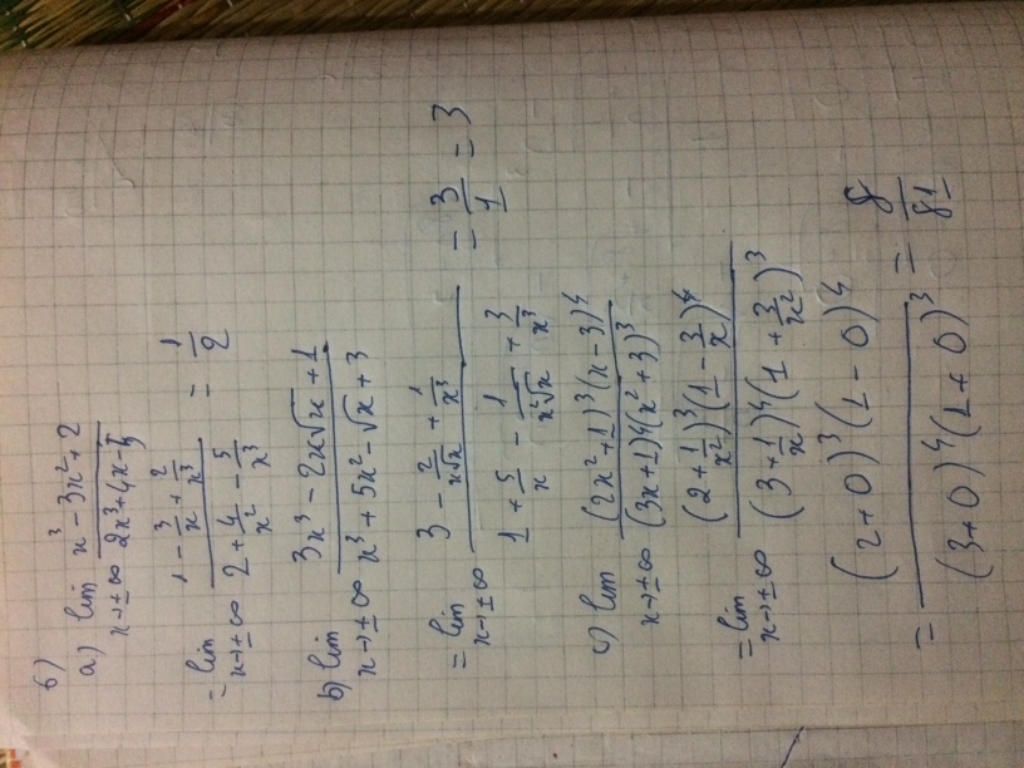 6)
a) lim x→±∞ (x³ - 3x² + 2)/(2x³ + 4x - 5)
= lim x→±∞ (1 - 3/x + 2/x³)/(2 + 4/x² - 5/x³) = 1/2
b) lim x→±∞ (3x³ - 2x√x + 1)/(x³ + 5x² - √x + 3)
= lim x→±∞ (3 - 2/(x√x) + 1/x³)/(1 + 5/x - 1/(x²√x) + 3/x³) = 3/1 = 3
c) lim x→±∞ ((2x² + 1)³(x - 3)⁴)/((3x + 1)⁴(x² + 3)³)
= lim x→±∞ ((2 + 1/x²)³(1 - 3/x)⁴)/((3 + 1/x)⁴(1 + 3/x²)³)
= ((2 + 0)³(1 - 0)⁴)/((3 + 0)⁴(1 + 0)³) = 8/81